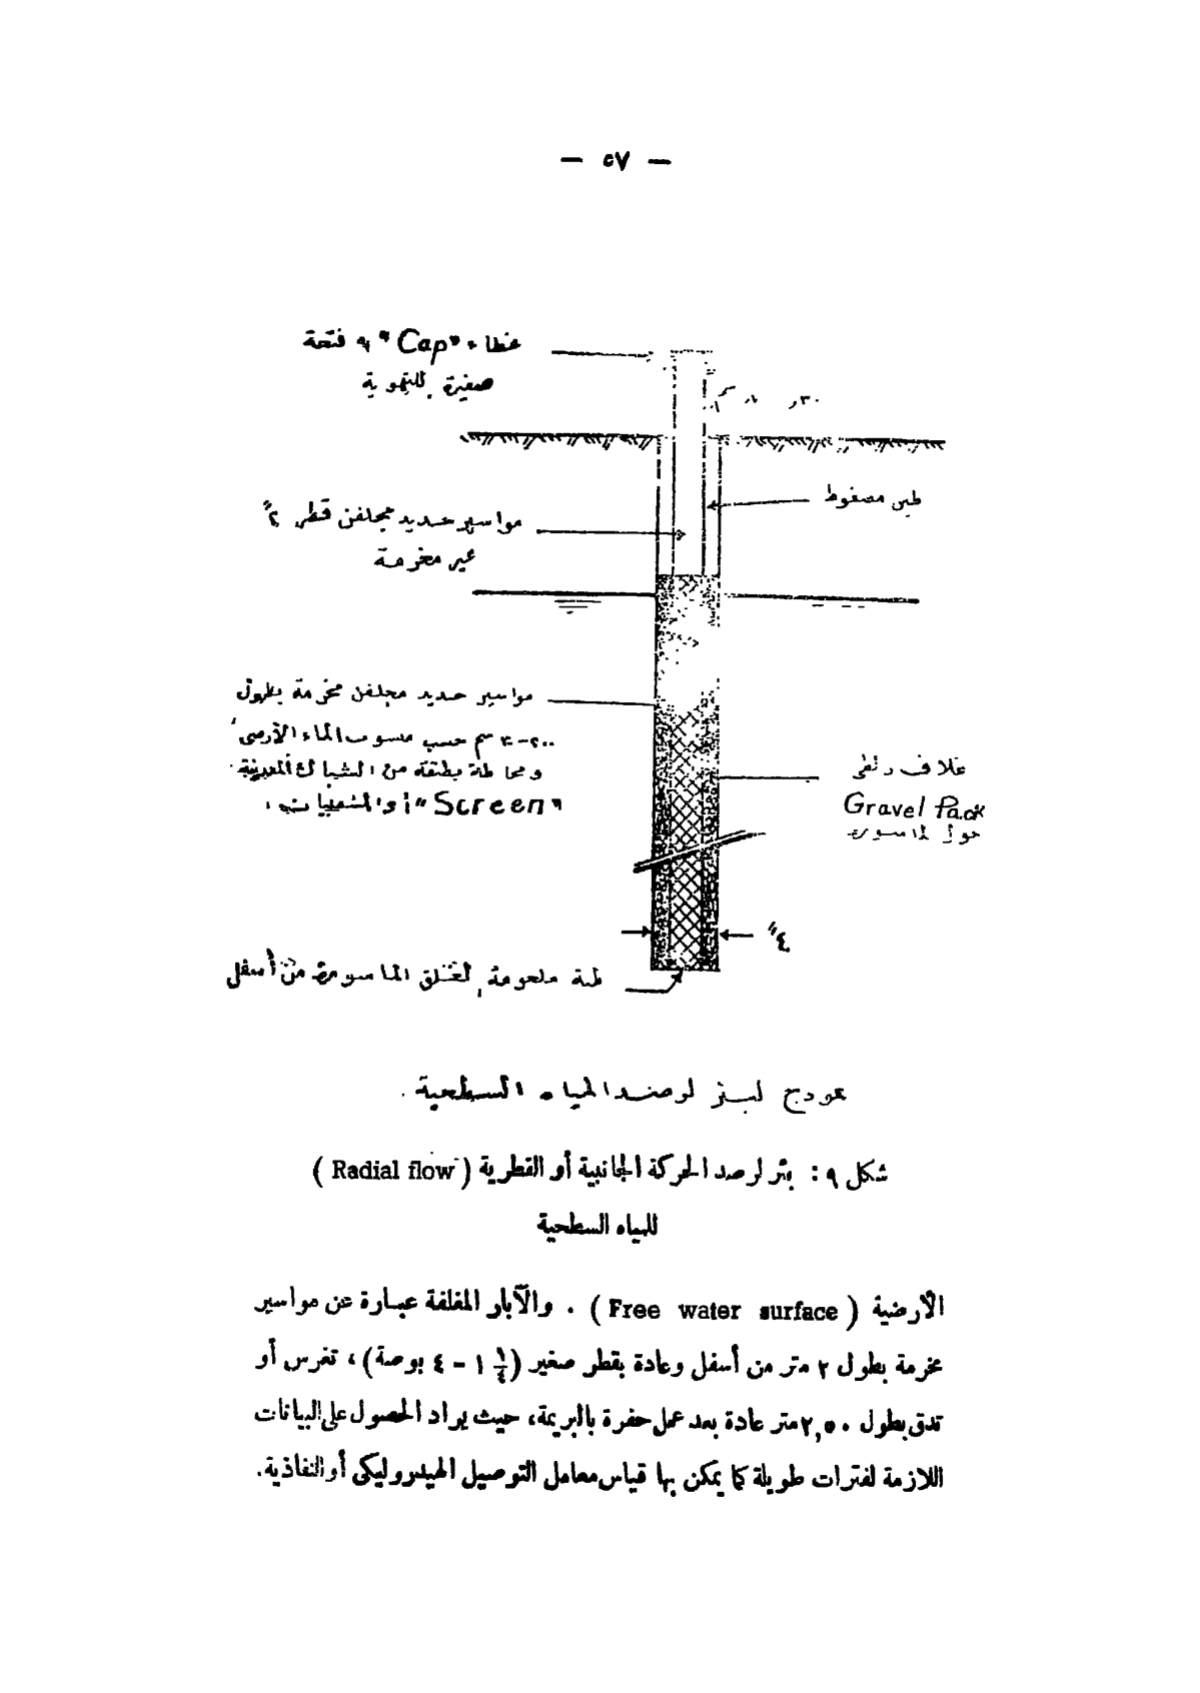 — ٥٧ —
غطاء "Cap" به فتحة
صغيرة للتهوية
طين مضغوط
مواسير حديد مجلفن قطر ٢"
غير مخرمة
مواسير حديد مجلفن مخرمة بطول
٢٠٠-٣٠٠ سم حسب منسوب الماء الأرضى
ومحاطة بطبقة من الشباك المعدنية
"Screen" أو المشعبات
غلاف زلطى
Gravel Pack
حول الماسورة
٤"
طبة ملحومة لغلق الماسورة من أسفل
نموذج لبئر لرصد المياه السطحية .
شكل ٩ : بئر لرصد الحركة الجانبية أو القطرية ( Radial flow )
للمياه السطحية
الأرضية ( Free water surface ) . والآبار المغلفة عبارة عن مواسير
مخرمة بطول ٢ متر من أسفل وعادة بقطر صغير (١ ١/٤ – ٤ بوصة) ، تغرس أو
تدق بطول ٢,٥٠ متر عادة بعد عمل حفرة بالبريمة، حيث يراد الحصول على البيانات
اللازمة لفترات طويلة كما يمكن بها قياس معامل التوصيل الهيدروليكى أو النفاذية.